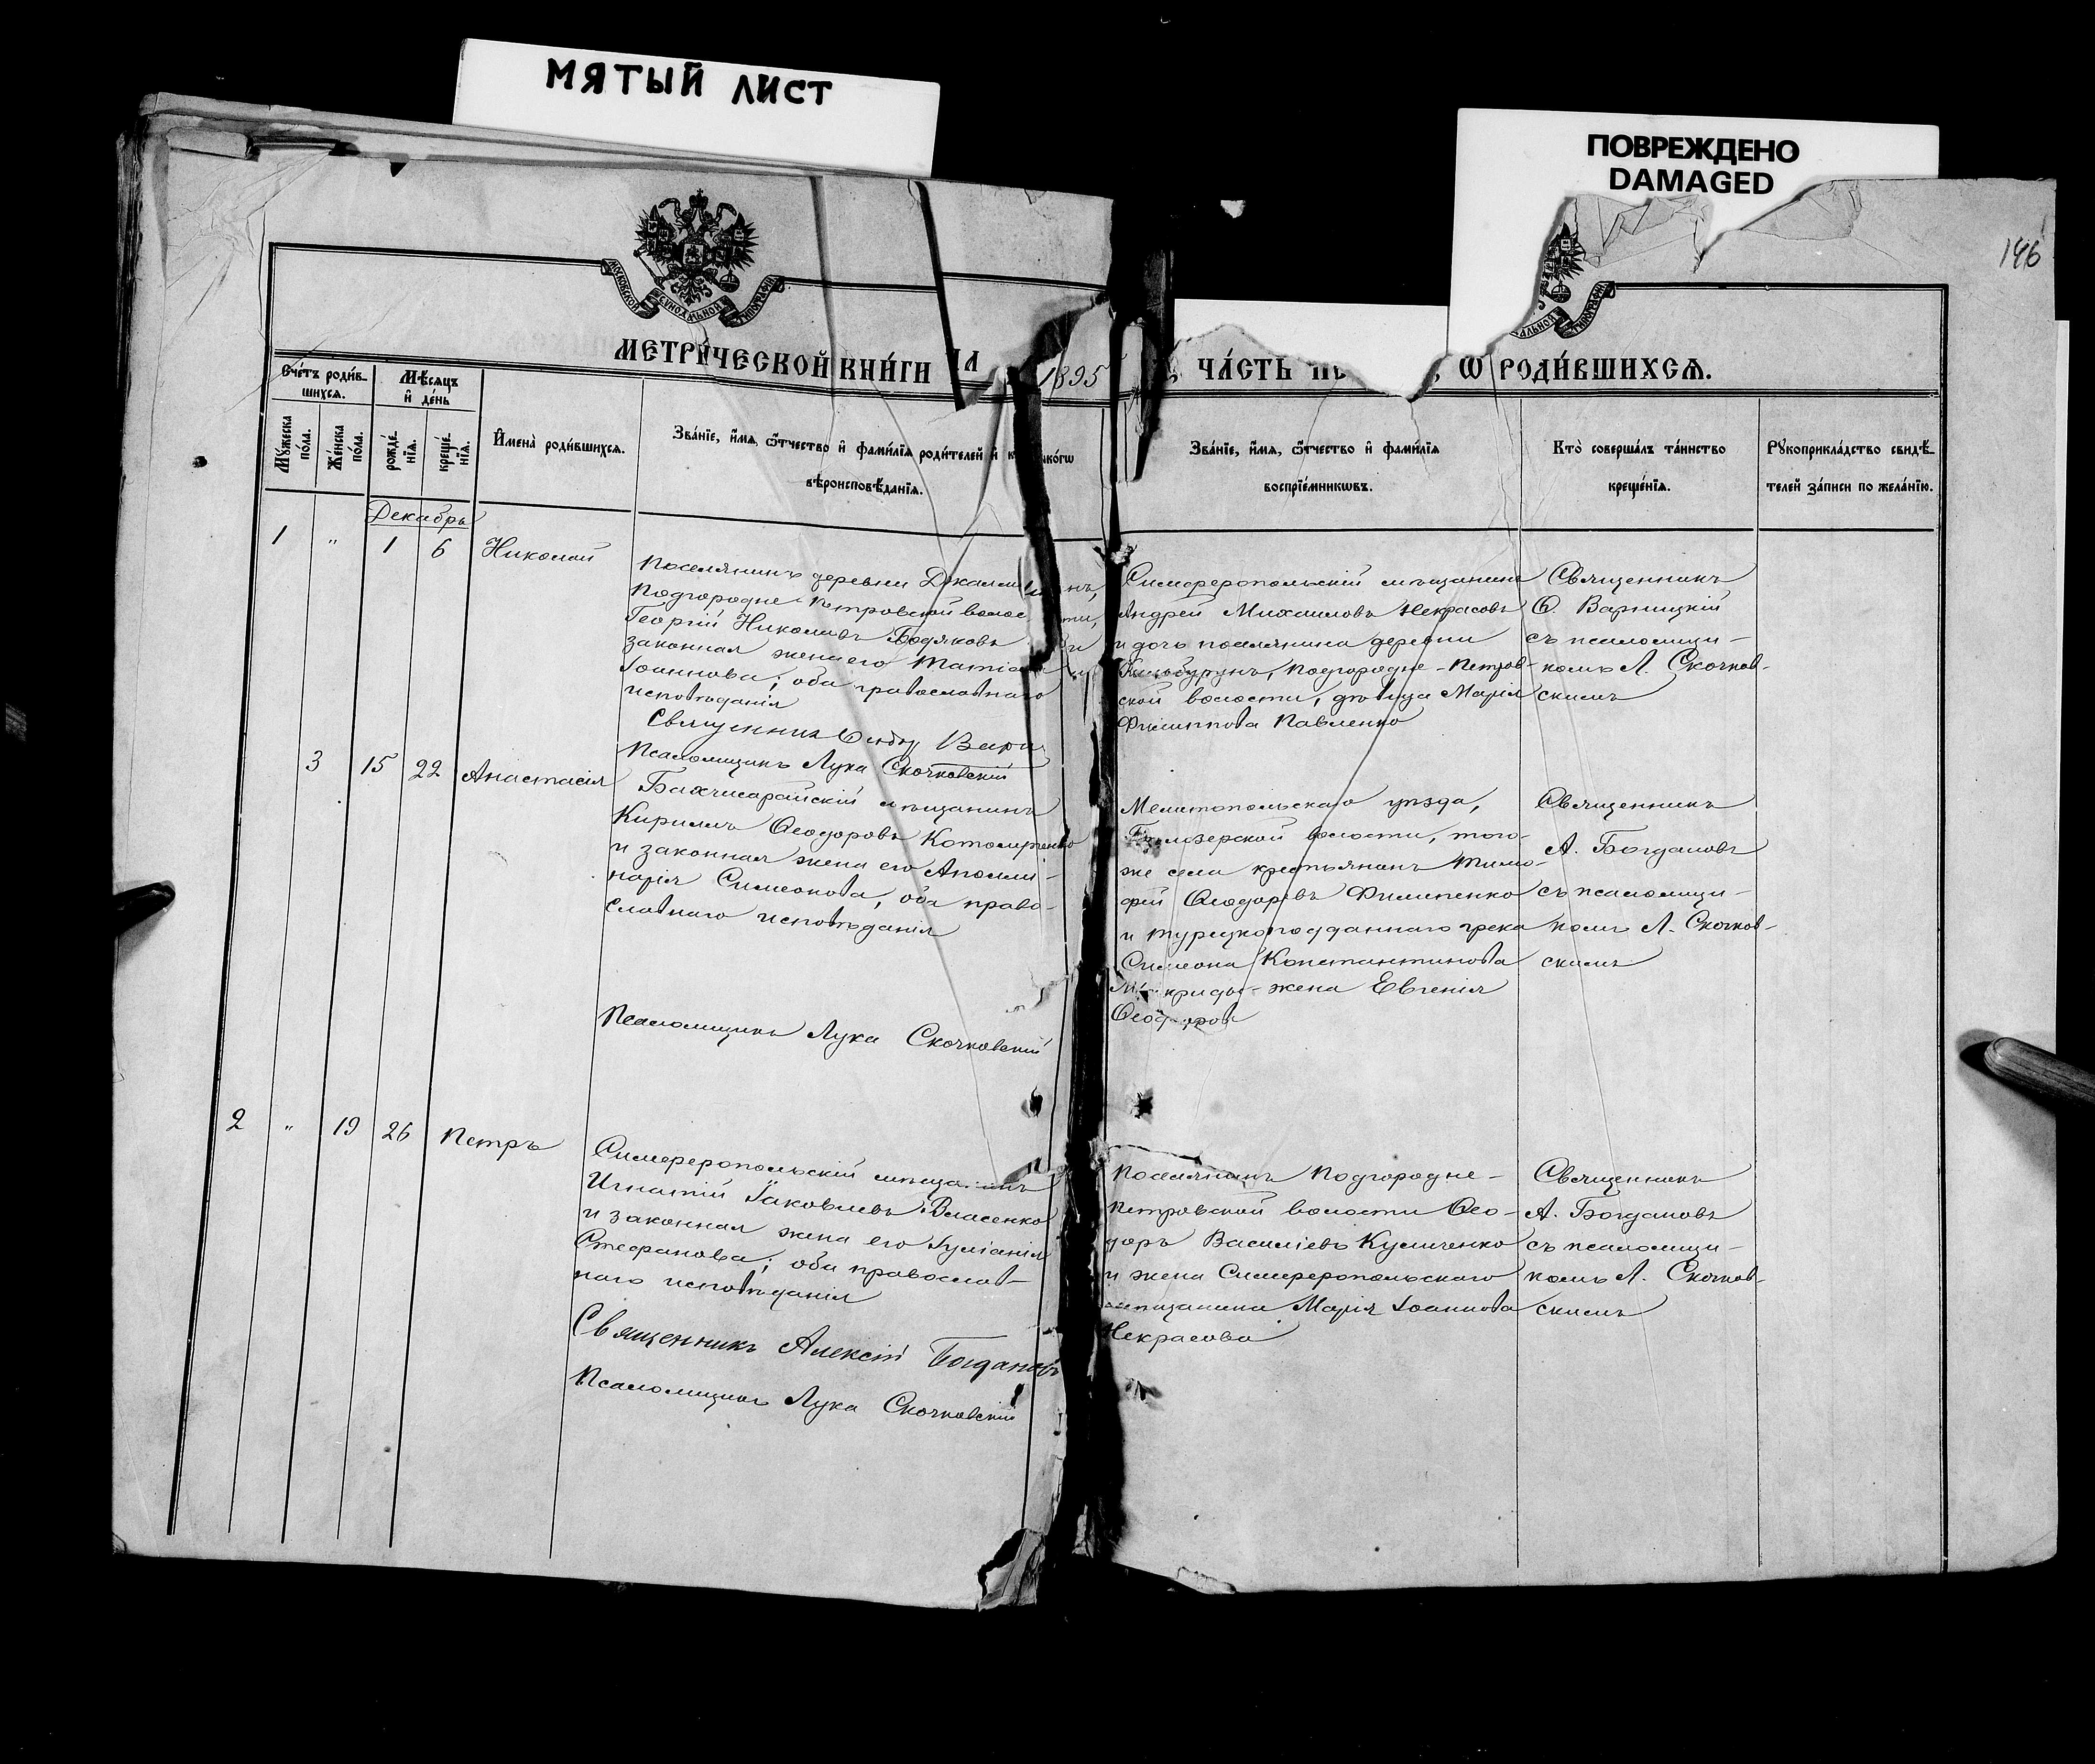 МЯТЫЙ ЛИСТ
ПОВРЕЖДЕНО
DAMAGED
146
МОСКОВСКОЙ СѴНОДАЛЬНОЙ ТИПОГРАФІИ
АЛЬНОЙ ТИПОГРАФІИ
МЕТРИ́ЧЕСКОЙ КНИ́ГИ
1895
ЧА́СТЬ
Ѡ РОДИ́ВШИХСѦ.
Сче́тъ роди́в-
шихсѧ.
Мѣ́сѧцъ
и҆ де́нь
Мꙋ́жеска
по́ла.
Же́нска
по́ла.
рожде́-
нїѧ.
креще́-
нїѧ.
И҆мена̀ роди́вшихсѧ.
Зва́нїе, и҆́мѧ, ѻ҆́тчество и҆ фами́лїѧ роди́телей и҆
вѣроисповѣ́данїѧ.
Зва́нїе, и҆́мѧ, ѻ҆́тчество и҆ фами́лїѧ
воспрїе́мникѡвъ.
Кто̀ соверша́лъ та́инство
креще́нїѧ.
Рꙋкоприкла́дство свидѣ́-
телей за́писи по жела́нїю.
Декабрь
1 " 1 6 Николай
Поселянинъ деревни
Подгородне-Петровской волости,
Георгій Николаевъ Бодяковъ и
законная жена его
Іоаннова; оба православнаго
исповѣданія
Священникъ
Псаломщикъ Лука Скочковскій
Симферопольскій мѣщанинъ
Андрей Михаиловъ Некрасовъ
и дочь поселянина деревни
Подгородне-Петров-
ской волости, дѣвица Марія
Филиппова Павленко
Священникъ
Ѳ. Варницкій
съ псаломщи-
комъ Л. Скочков-
скимъ
3 15 22 Анастасія
Бахчисарайскій мѣщанинъ
Кириллъ Ѳеодоровъ
и законная жена его Аполли-
нарія Симеонова, оба право-
славнаго исповѣданія
Псаломщикъ Лука Скочковскій
Мелитопольскаго уѣзда,
волости, того-
же села крестьянинъ Тимо-
фей Ѳеодоровъ Филипенко
и турецкоподданнаго грека
Симеона Константинова
жена Евгенія
Ѳеодорова
Священникъ
А. Богдановъ
съ псаломщи-
комъ Л. Скочков-
скимъ
2 " 19 26 Петръ
Симферопольскій мѣщанинъ
Игнатій Іаковлевъ Власенко
и законная жена его Іуліанія
Стефанова; оба православ-
наго исповѣданія
Священникъ Алексій Богдановъ
Псаломщикъ Лука Скочковскій
Поселянинъ Подгородне-
Петровской волости Ѳео-
доръ Василіевъ Куличенко
и жена Симферопольскаго
мѣщанина Марія Іоаннова
Некрасова
Священникъ
А. Богдановъ
съ псаломщи-
комъ Л. Скочков-
скимъ